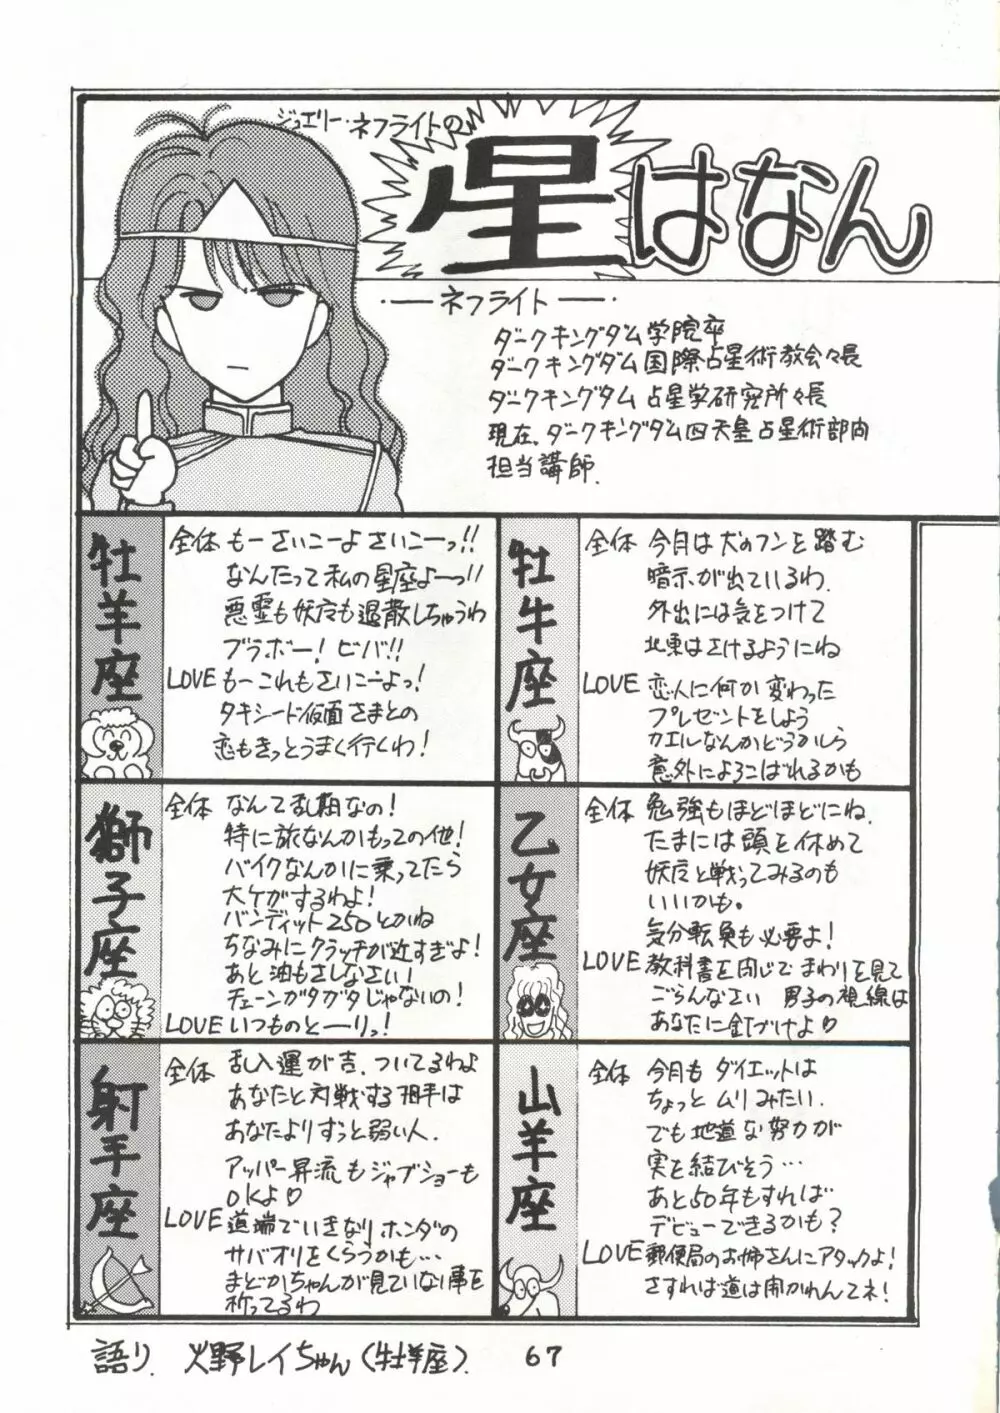 ジュエリー・ネフライトの
星はなん
・―ネフライト―・
ダークキングダム学院卒
ダークキングダム国際占星術教会々長
ダークキングダム占星学研究所々長
現在、ダークキングダム四天皇占星術部内
担当講師.
牡羊座
全体 もーさいこーよさいこーっ!!
なんたって私の星座よーっ!!
悪霊も妖魔も退散しちゃうわ
ブラボー!ビバ!!
LOVE もーこれもさいこーよっ!
タキシード仮面さまとの
恋もきっとうまく行くわ!
牡牛座
全体 今月は犬のフンを踏む
暗示が出ているわ.
外出には気をつけて
北東はさけるようにね
LOVE 恋人に何か変わった
プレゼントをしよう
カエルなんかどうかしら
意外によろこばれるかも
獅子座
全体 なんて乱期なの!
特に旅なんかもっての他!
バイクなんかに乗ってたら
大ケガするわよ!
バンディット250とかね
ちなみにクラッチが近すぎよ!
あと油もさしなさい!
チェーンがタガタじゃないの!
LOVE いつものとーりっ!
乙女座
全体 勉強もほどほどにね.
たまには頭を休めて
妖魔と戦ってみるのも
いいかも。
気分転換も必要よ!
LOVE 教科書を閉じてまわりを見て
ごらんなさい 男子の視線は
あなたに釘づけよ♡
射手座
全体 乱入運が吉.ついてるわよ
あなたと対戦する相手は
あなたよりずっと弱い人.
アッパー昇流もジャブショーも
OKよ♡
LOVE 道端でいきなりホンダの
サバオリをくらうかも…
まどかちゃんが見ていない事を
祈ってるわ
山羊座
全体 今月もダイエットは
ちょっとムリみたい.
でも地道な努力が
実を結びそう…
あと50年もすれば
デビューできるかも?
LOVE 郵便局のお姉さんにアタックよ!
さすれば道は開かれんてネ!
語り. 火野レイちゃん(牡羊座).
67